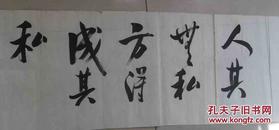 人其
無私
方得
成其
私